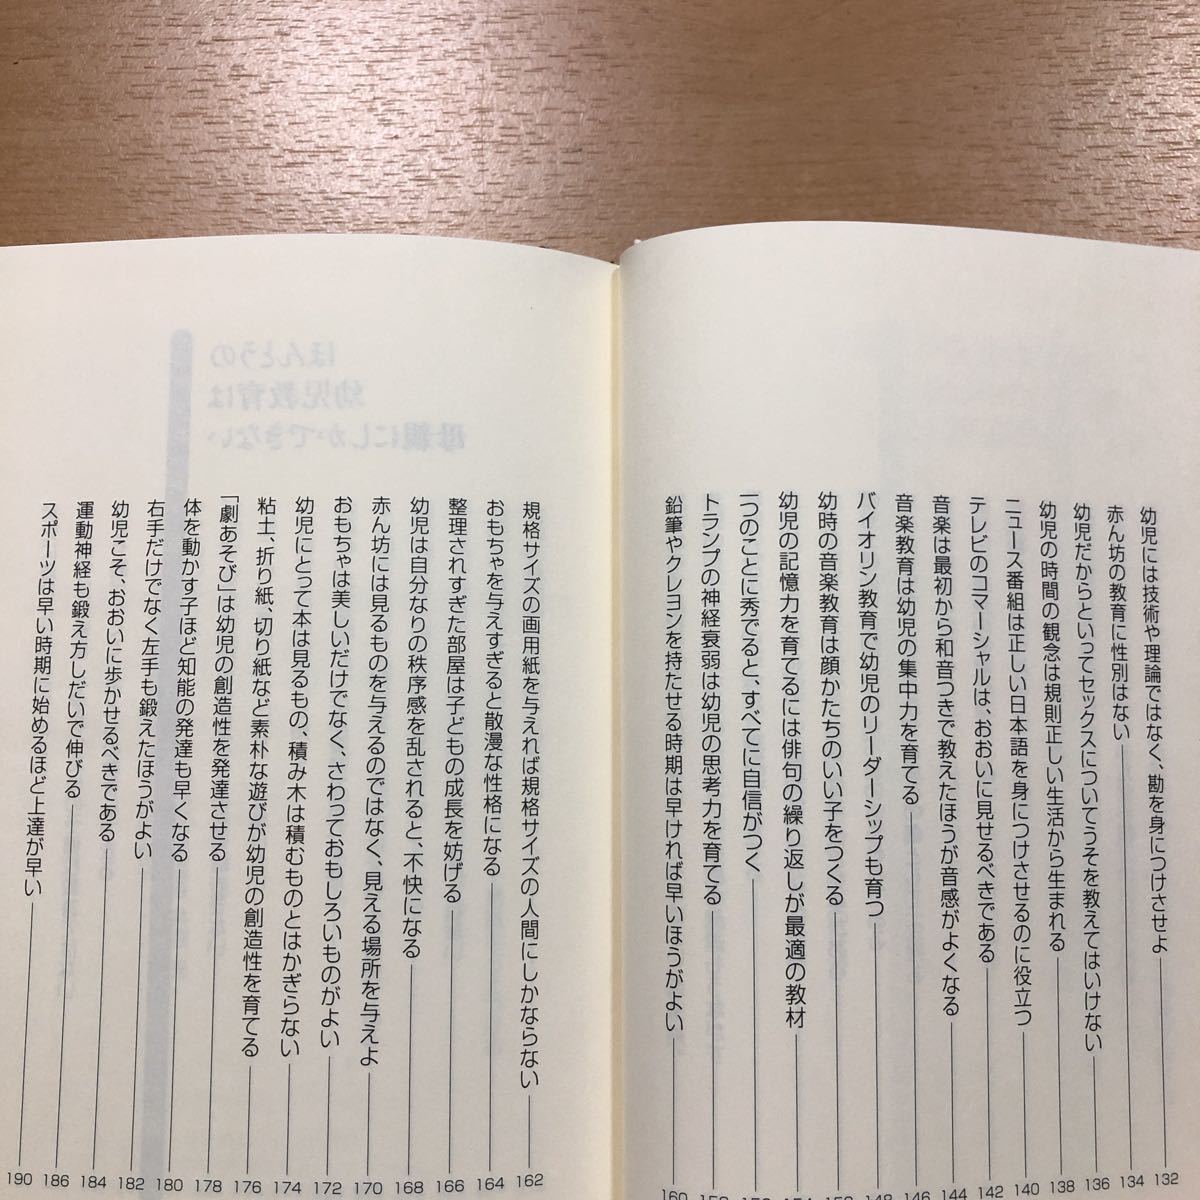 幼児には技術や理論ではなく、勘を身につけさせよ 132
赤ん坊の教育に性別はない 134
幼児だからといってセックスについてうそを教えてはいけない 136
幼児の時間の観念は規則正しい生活から生まれる 138
ニュース番組は正しい日本語を身につけさせるのに役立つ 140
テレビのコマーシャルは、おおいに見せるべきである 142
音楽は最初から和音つきで教えたほうが音感がよくなる 144
音楽教育は幼児の集中力を育てる 146
バイオリン教育で幼児のリーダーシップも育つ 148
幼時の音楽教育は顔かたちのいい子をつくる
幼児の記憶力を育てるには俳句の繰り返しが最適の教材
一つのことに秀でると、すべてに自信がつく
トランプの神経衰弱は幼児の思考力を育てる
鉛筆やクレヨンを持たせる時期は早ければ早いほうがよい 160
規格サイズの画用紙を与えれば規格サイズの人間にしかならない 162
おもちゃを与えすぎると散漫な性格になる 164
整理されすぎた部屋は子どもの成長を妨げる 166
幼児は自分なりの秩序感を乱されると、不快になる 168
赤ん坊には見るものを与えるのではなく、見える場所を与えよ 170
おもちゃは美しいだけでなく、さわっておもしろいものがよい 172
幼児にとって本は見るもの、積み木は積むものとはかぎらない 174
粘土、折り紙、切り紙など素朴な遊びが幼児の創造性を育てる 176
「劇あそび」は幼児の創造性を発達させる 178
体を動かす子ほど知能の発達も早くなる 180
右手だけでなく左手も鍛えたほうがよい 182
幼児こそ、おおいに歩かせるべきである 184
運動神経も鍛え方しだいで伸びる 186
スポーツは早い時期に始めるほど上達が早い 190
ほんとうの
幼児教育は
母親にしかできない